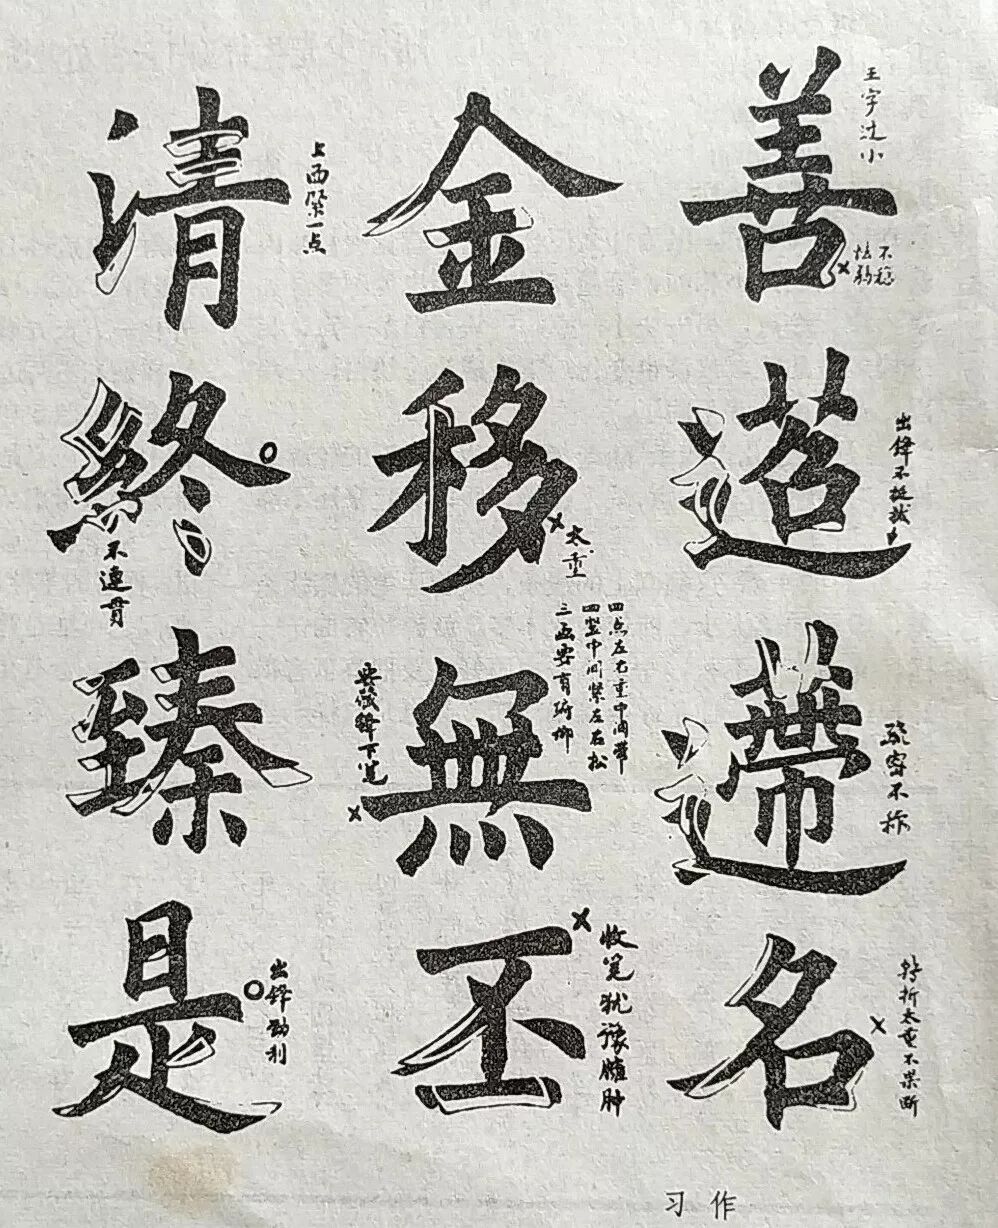 善
名
王字过小
不稳
怯弱
出锋不挺拔
疏密不称
转折太重不果断
金
移
無
丕
太重
四点左右重中间带
四竖中间紧左右松
三画要有俯仰
锋下笔
收笔犹豫臃肿
清
終
臻
是
上面紧一点
不連贯
出锋劲利
习作